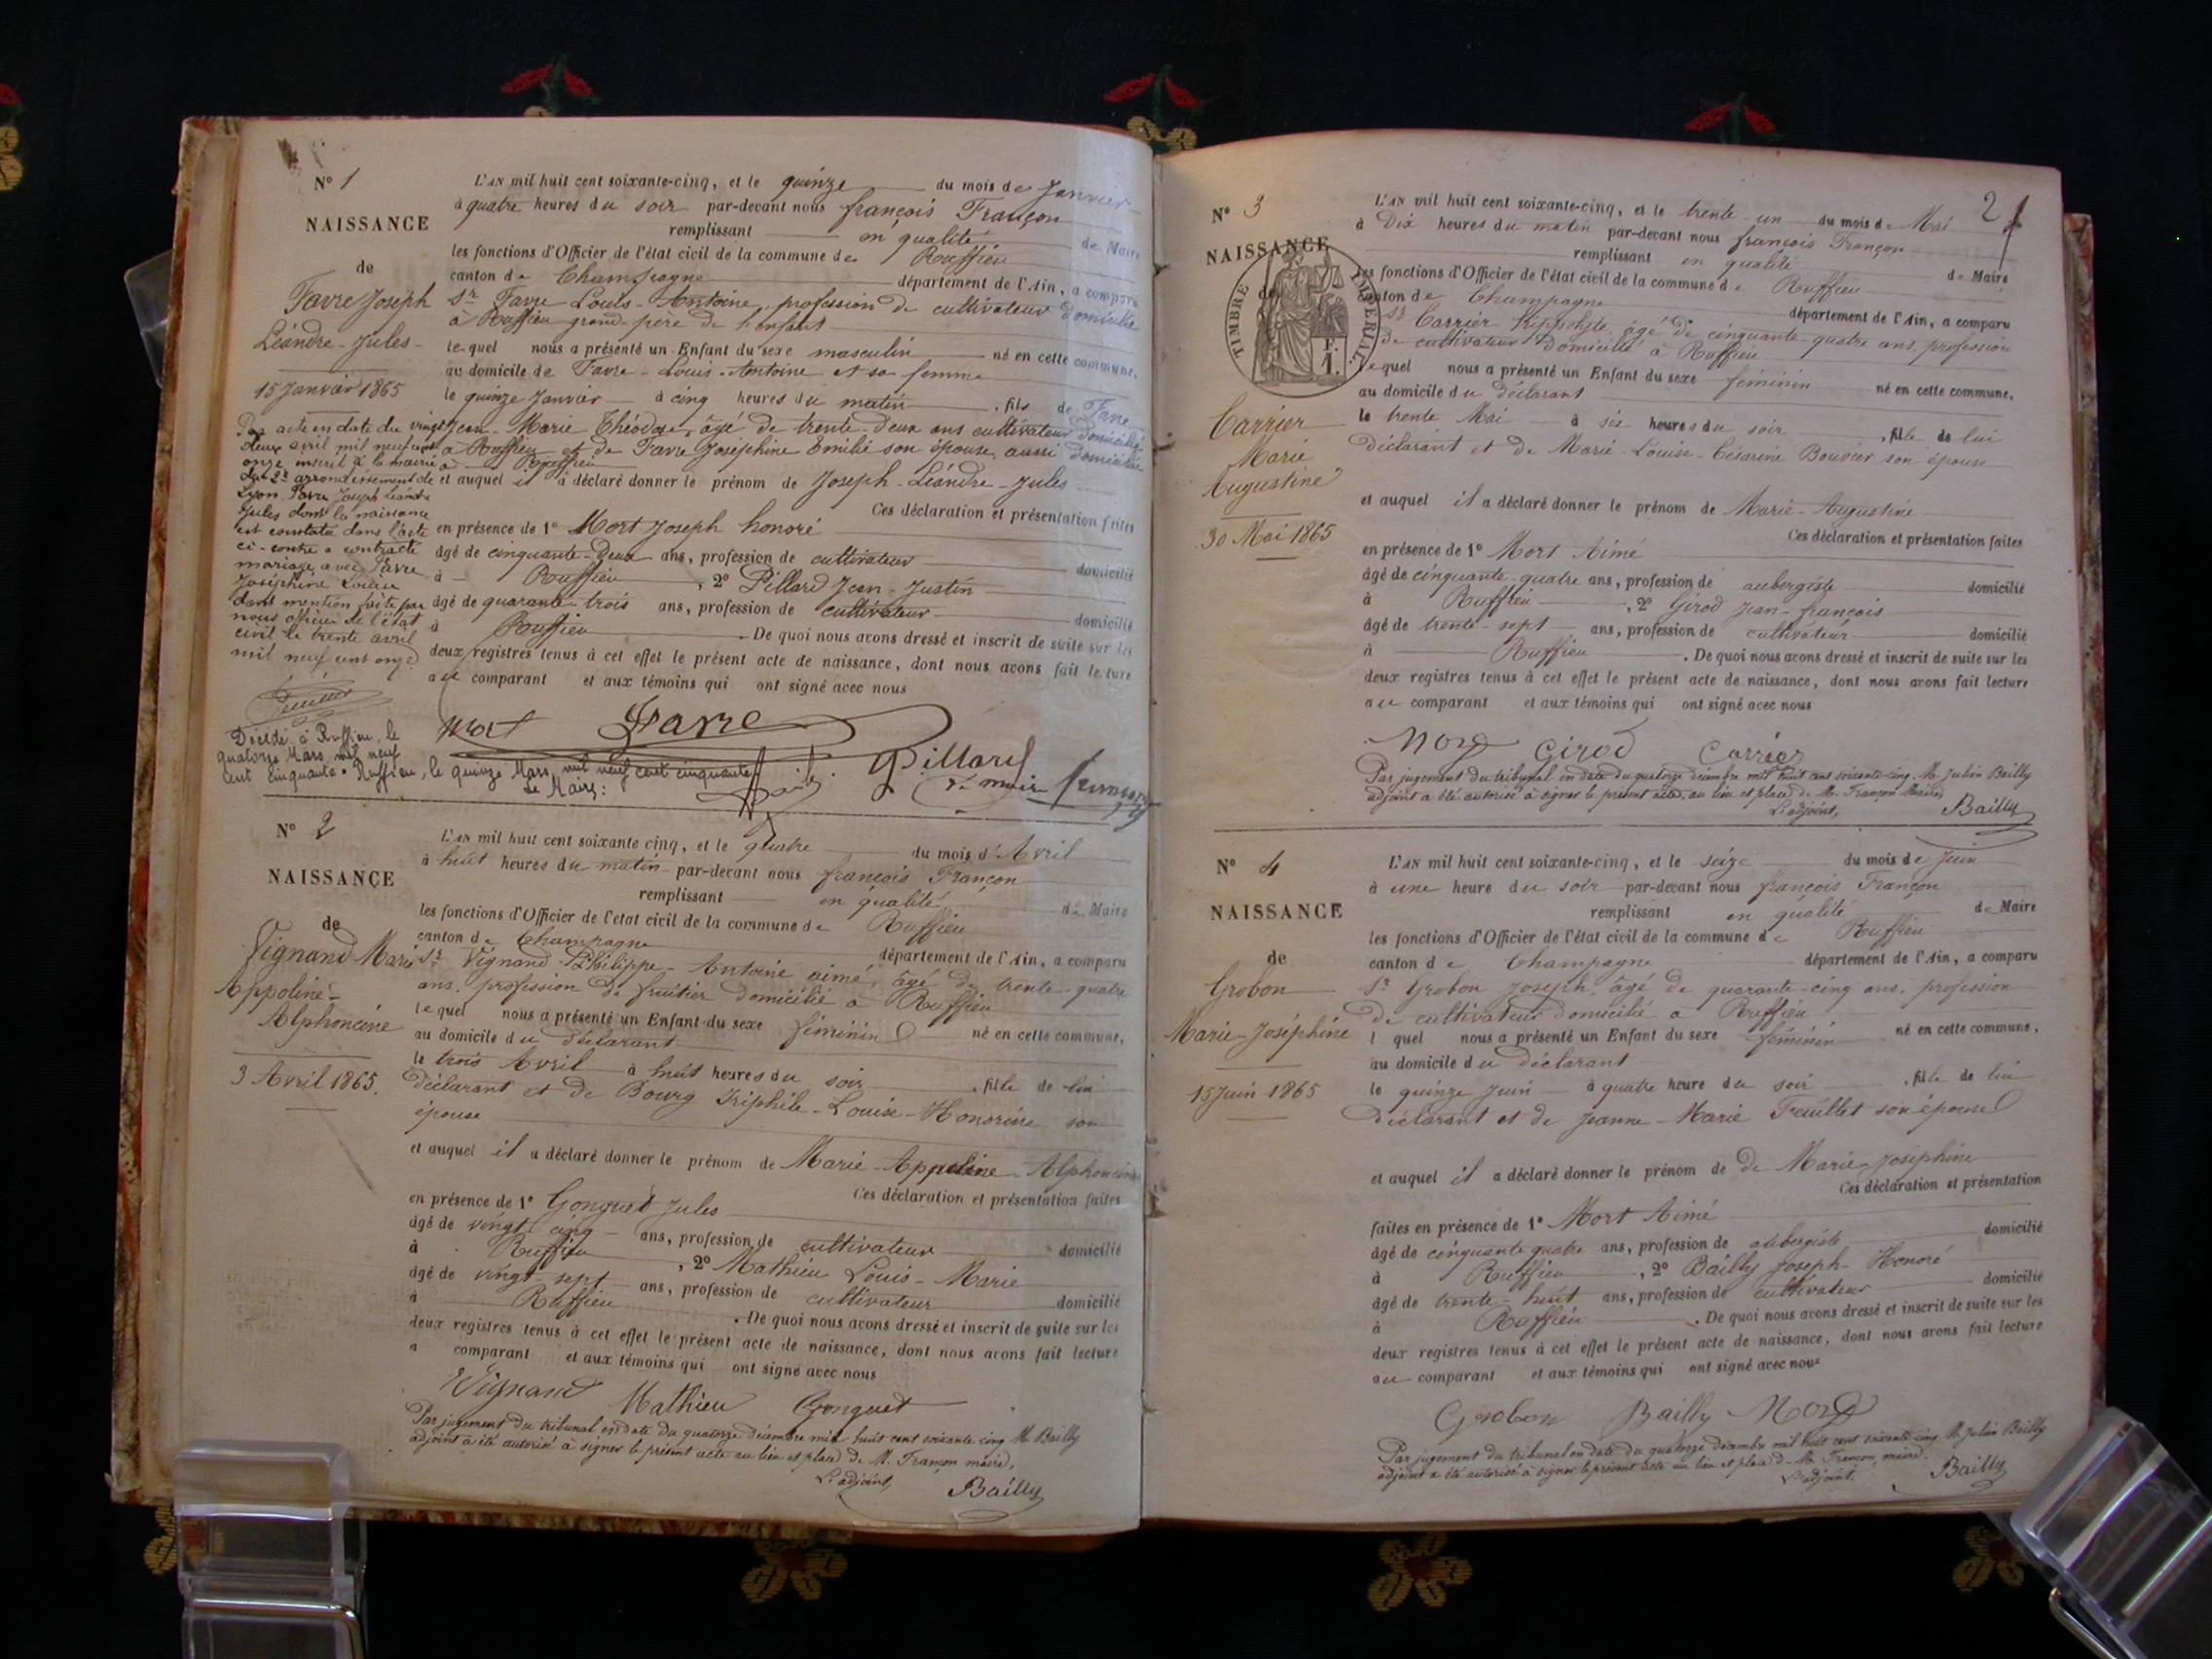 N° 1
NAISSANCE
de
Favre Joseph
Léandre-Jules-
15 Janvier 1865
Par acte en date du vingt
deux avril mil neuf cent
onze inscrit à la mairie
du 2e arrondissement de
Lyon Favre Joseph Léandre
Jules dont la naissance
est constatée dans l'acte
ci-contre a contracté
mariage avec Favre
Joséphine Louise
dont mention faite par
nous officier de l'état
civil le trente avril
mil neuf cent onze
L'AN mil huit cent soixante-cinq, et le quinze du mois de Janvier
à quatre heures du soir par-devant nous françois Françon
remplissant en qualité de Maire
les fonctions d'Officier de l'état civil de la commune de Ruffieu
canton de Champagne département de l'Ain, a comparu
Sr Favre Louis-Antoine, profession de cultivateur domicilié
à Ruffieu grand-père de l'enfant
lequel nous a présenté un Enfant du sexe masculin né en cette commune,
au domicile de Favre-Louis-Antoine et sa femme
le quinze Janvier à cinq heures du matin, fils de Favre
Jean-Marie Théodose, âgé de trente-deux ans cultivateur domicilié
à Ruffieu et de Favre Joséphine Emilie son épouse, aussi domiciliée
à Ruffieu
et auquel il a déclaré donner le prénom de Joseph-Léandre-Jules
Ces déclaration et présentation faites
en présence de 1° Mort Joseph honoré
âgé de cinquante-deux ans, profession de cultivateur domicilié
à Ruffieu, 2° Pillard Jean-Justin
âgé de quarante-trois ans, profession de cultivateur domicilié
à Ruffieu. De quoi nous avons dressé et inscrit de suite sur les
deux registres tenus à cet effet le présent acte de naissance, dont nous avons fait lecture
au comparant et aux témoins qui ont signé avec nous
Mort Favre Pillard
Le maire françon
Décédé à Ruffieu, le
quatorze Mars mil neuf
cent cinquante. Ruffieu, le quinze Mars mil neuf cent cinquante
Le Maire:
N° 2
NAISSANCE
de
Vignand Marie
Appoline-
Alphoncine
3 Avril 1865.
L'AN mil huit cent soixante cinq, et le quatre du mois d'Avril
à huit heures du matin par-devant nous françois Françon
remplissant en qualité de Maire
les fonctions d'Officier de l'état civil de la commune de Ruffieu
canton de Champagne département de l'Ain, a comparu
Sr Vignand Philippe-Antoine aimé, âgé de trente-quatre
ans, profession de fruitier domicilié à Ruffieu
lequel nous a présenté un Enfant du sexe féminin né en cette commune,
au domicile du déclarant
le trois Avril à huit heures du soir, fille de lui
déclarant et de Bourg Triphile-Louise-Honorine son
épouse
et auquel il a déclaré donner le prénom de Marie-Appoline-Alphoncine
Ces déclaration et présentation faites
en présence de 1° Gonguet Jules
âgé de vingt cinq ans, profession de cultivateur domicilié
à Ruffieu, 2° Mathieu Louis-Marie
âgé de vingt-sept ans, profession de cultivateur domicilié
à Ruffieu. De quoi nous avons dressé et inscrit de suite sur les
deux registres tenus à cet effet le présent acte de naissance, dont nous avons fait lecture
a comparant et aux témoins qui ont signé avec nous
Vignand Mathieu Gonguet
Par jugement du tribunal en date du quatorze décembre mil huit cent soixante cinq M. Bailly
adjoint a été autorisé à signer le présent acte au lieu et place de M. Françon maire,
L'adjoint,
Bailly
2
N° 3
NAISSANCE
de
TIMBRE IMPERIAL
F. 1.
Carrier
Marie
Augustine
30 Mai 1865
L'AN mil huit cent soixante-cinq, et le trente-un du mois de Mai
à Dix heures du matin par-devant nous françois Françon
remplissant en qualité de Maire
les fonctions d'Officier de l'état civil de la commune de Ruffieu
canton de Champagne département de l'Ain, a comparu
Sr Carrier hippolyte, âgé de cinquante-quatre ans, profession
de cultivateur domicilié à Ruffieu
lequel nous a présenté un Enfant du sexe féminin né en cette commune,
au domicile du déclarant
le trente Mai à six heures du soir, fille de lui
déclarant et de Marie-Louise-Césarine Bouvier son épouse
et auquel il a déclaré donner le prénom de Marie-Augustine
Ces déclaration et présentation faites
en présence de 1° Mort Aimé
âgé de cinquante-quatre ans, profession de aubergiste domicilié
à Ruffieu, 2° Girod Jean-françois
âgé de trente-sept ans, profession de cultivateur domicilié
à Ruffieu. De quoi nous avons dressé et inscrit de suite sur les
deux registres tenus à cet effet le présent acte de naissance, dont nous avons fait lecture
au comparant et aux témoins qui ont signé avec nous
Mort Girod Carrier
Par jugement du tribunal en date du quatorze décembre mil huit cent soixante-cinq. M. Julien Bailly
adjoint a été autorisé à signer le présent acte, au lieu et place de M. Françon Maire,
L'adjoint,
Bailly
N° 4
NAISSANCE
de
Grobon
Marie-Joséphine
15 Juin 1865
L'AN mil huit cent soixante-cinq, et le seize du mois de Juin
à une heure du soir par-devant nous françois Françon
remplissant en qualité de Maire
les fonctions d'Officier de l'état civil de la commune de Ruffieu
canton de Champagne département de l'Ain, a comparu
Sr Grobon Joseph, âgé de quarante-cinq ans, profession
de cultivateur domicilié à Ruffieu
l quel nous a présenté un Enfant du sexe féminin né en cette commune,
au domicile du déclarant
le quinze Juin à quatre heure du soir, fille de lui
déclarant et de Jeanne-Marie Feuillet son épouse
et auquel il a déclaré donner le prénom de de Marie-Joséphine
Ces déclaration et présentation
faites en présence de 1° Mort Aimé
âgé de cinquante quatre ans, profession de aubergiste domicilié
à Ruffieu, 2° Bailly Joseph-Honoré
âgé de trente-huit ans, profession de cultivateur domicilié
à Ruffieu. De quoi nous avons dressé et inscrit de suite sur les
deux registres tenus à cet effet le présent acte de naissance, dont nous avons fait lecture
au comparant et aux témoins qui ont signé avec nous
Grobon Bailly Mort
Par jugement du tribunal en date du quatorze décembre mil huit cent soixante-cinq M. Julien Bailly
adjoint a été autorisé à signer le présent acte au lieu et place de M. Françon, maire.
L'adjoint,
Bailly